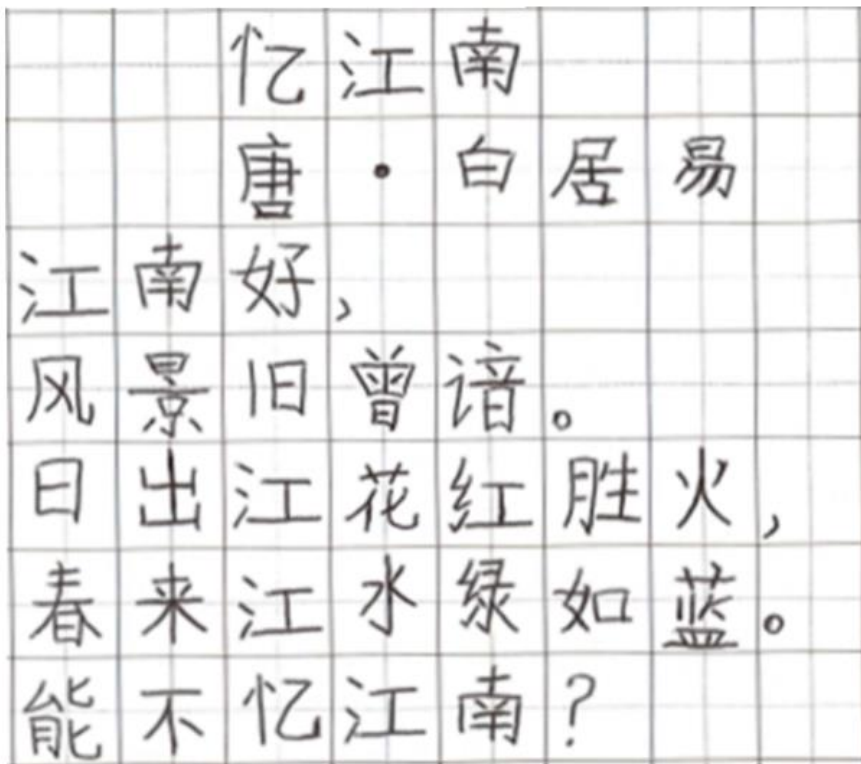 忆江南
唐·白居易
江南好，
风景旧曾谙。
日出江花红胜火，
春来江水绿如蓝。
能不忆江南？